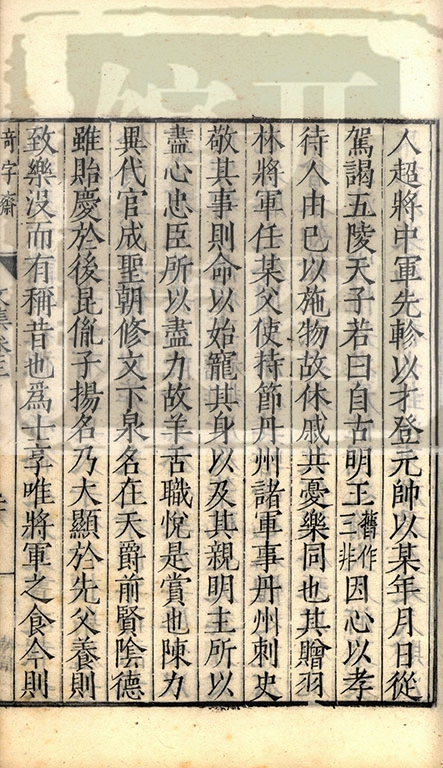 人超將中軍先軫以才登元帥以某年月日從
駕謁五陵天子若曰自古明王舊作三非因心以孝
待人由已以施物故休戚共憂樂同也其贈羽
林將軍任某父使持節丹州諸軍事丹州刺史
敬其事則命以始寵其身以及其親明主所以
盡心忠臣所以盡力故羊舌職悅是賞也陳力
異代官成聖朝修文下泉名在天爵前賢隂德
雖貽慶於後昆胤子揚名乃大顯於先父養則
致樂没而有稱昔也爲士享唯將軍之食今則
奇字齋
文集卷三